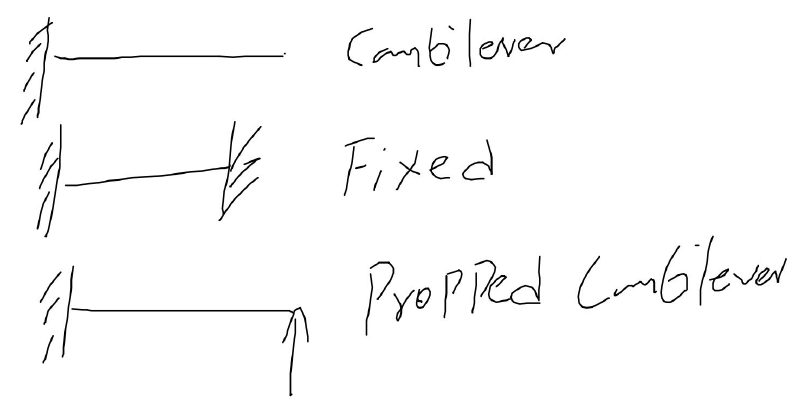 Cantilever
Fixed
Propped Cantilever